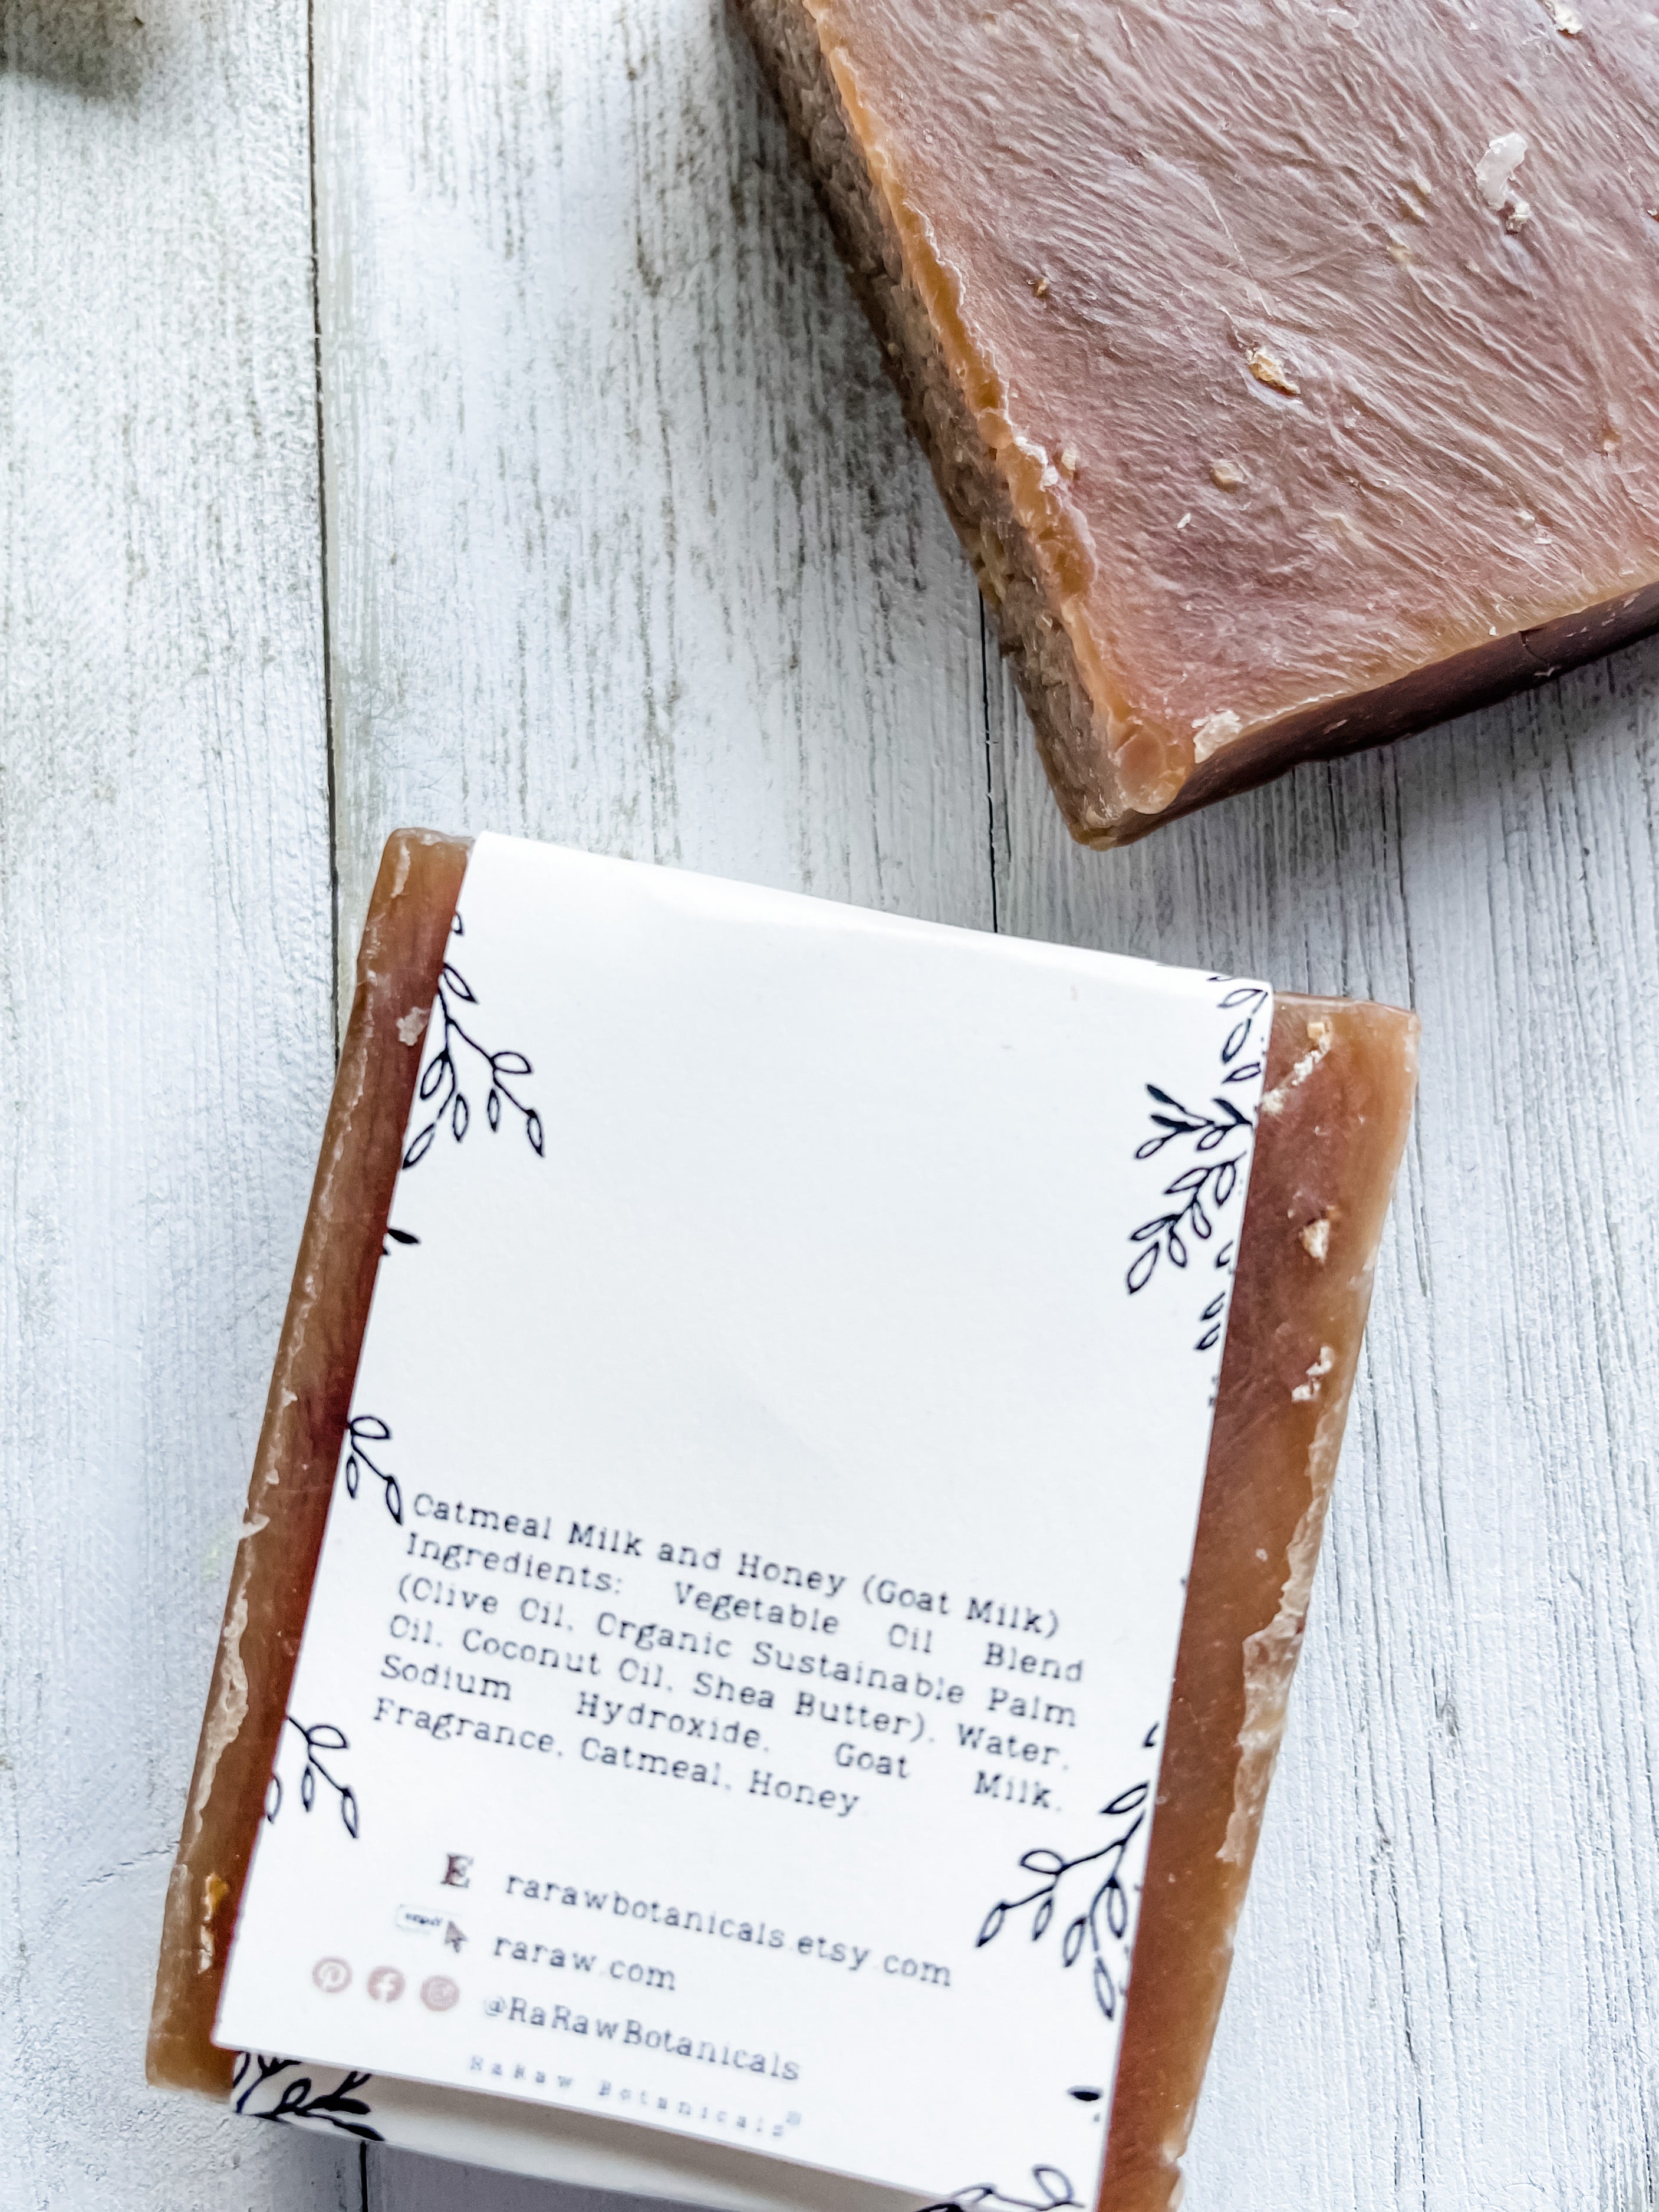 Oatmeal Milk and Honey (Goat Milk)
Ingredients: Vegetable Oil Blend
(Olive Oil, Organic Sustainable Palm
Oil, Coconut Oil, Shea Butter), Water,
Sodium Hydroxide, Goat Milk,
Fragrance, Oatmeal, Honey
E rarawbotanicals.etsy.com
raraw.com
@RaRawBotanicals
RaRaw Botanicals®